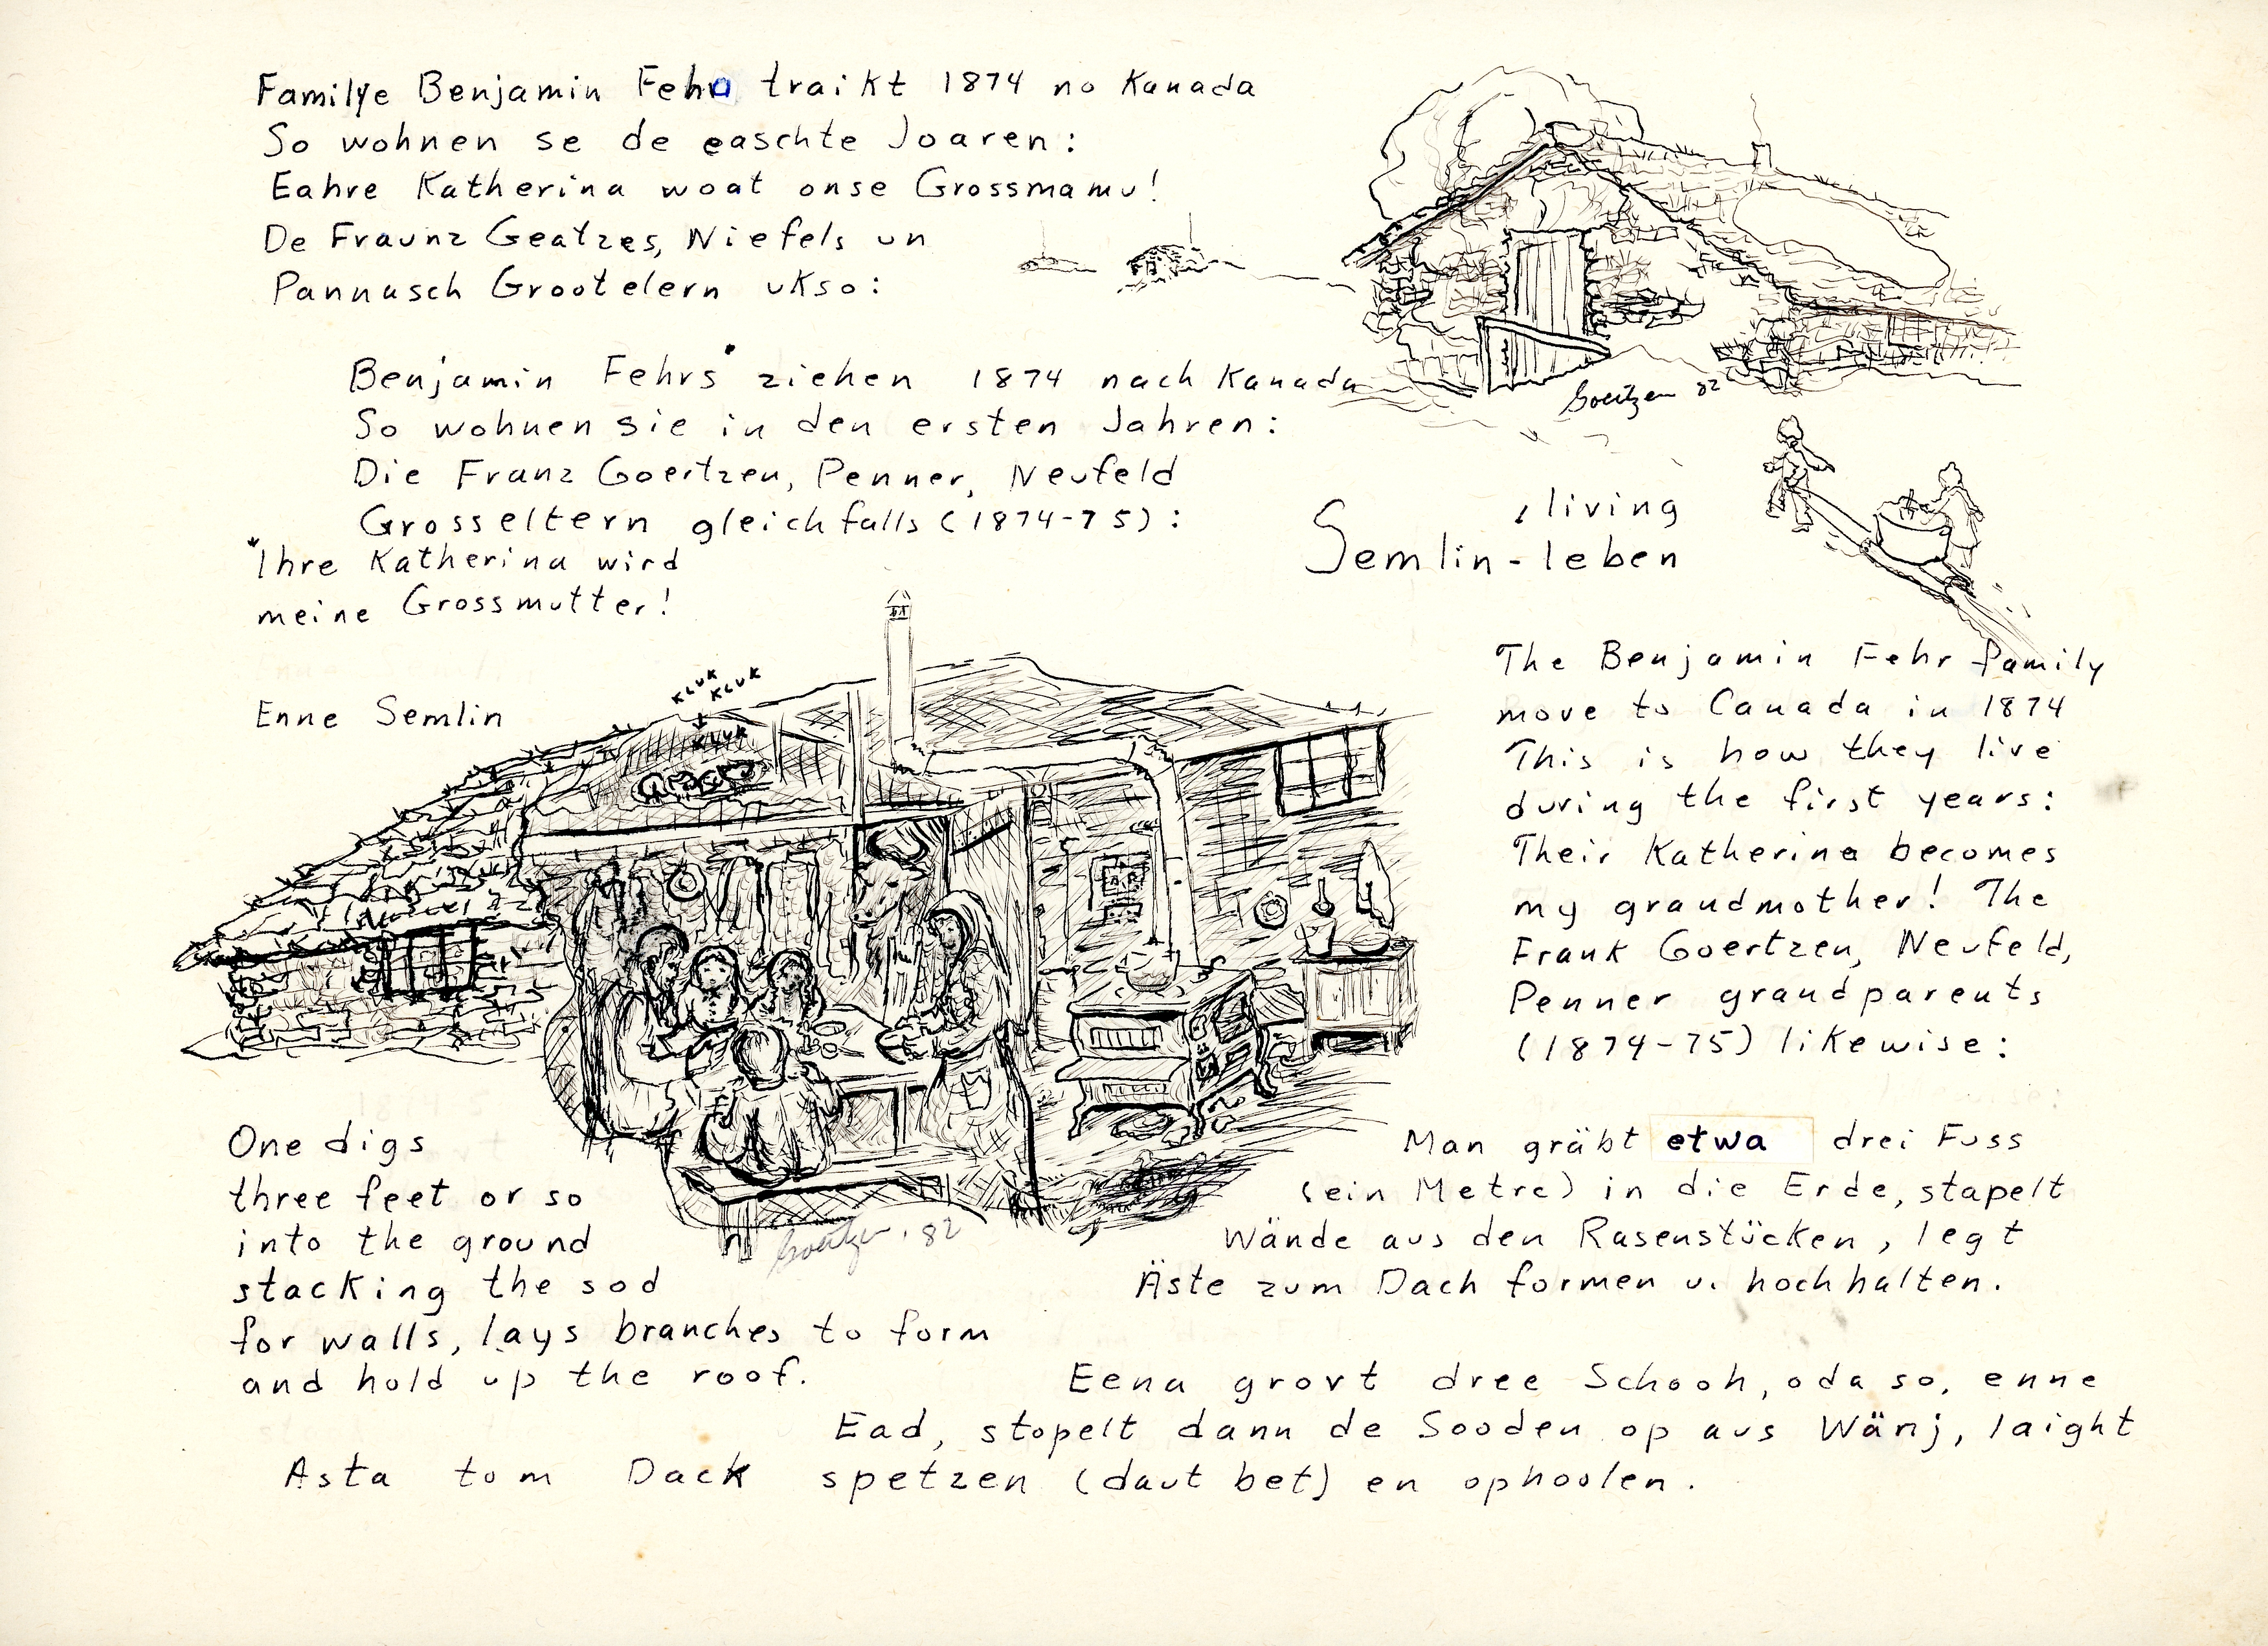 Familye Benjamin Fehra traikt 1874 no Kanada
So wohnen se de easchte Joaren:
Eahre Katherina woat onse Grossmamu!
De Fraunz Geatzes, Niefels un
Pannasch Grootelern ukso:
Benjamin Fehrs* ziehen 1874 nach Kanada
So wohnen sie in den ersten Jahren:
Die Franz Goertzen, Penner, Neufeld
Grosseltern gleichfalls (1874-75):
*Ihre Katherina wird
meine Grossmutter!
Goertzen 82
, living
Semlin-leben
Enne Semlin
KLUK
KLUK
KLUK
The Benjamin Fehr family
move to Canada in 1874
This is how they live
during the first years:
Their Katherina becomes
my grandmother! The
Frank Goertzen, Neufeld,
Penner grandparents
(1874-75) likewise:
Goertzen . 82
One digs
three feet or so
into the ground
stacking the sod
for walls, lays branches to form
and hold up the roof.
Man gräbt etwa drei Fuss
(ein Metre) in die Erde, stapelt
Wände aus den Rasenstücken, legt
Äste zum Dach formen u. hochhalten.
Eena grovt dree Schooh, oda so, enne
Ead, stopelt dann de Sooden op aus Wänj, laight
Asta tom Dack spetzen (daut bet) en ophoolen.